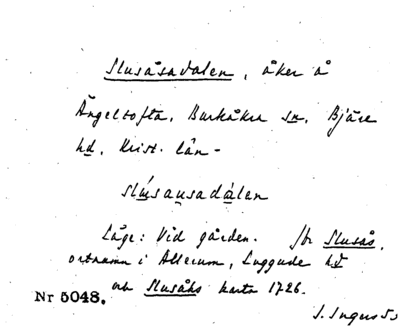 Slusåsadalen, åker å
Ängeltofta, Barkåkra sn, Bjäre
hd, Krist. län -
slúsausadàlen
Läge: Vid gården. Jfr Slusås,
ortnamn i Allerum, Luggude hd
och Slusåhs karta 1726.
Nr 5048.
S. Ingers